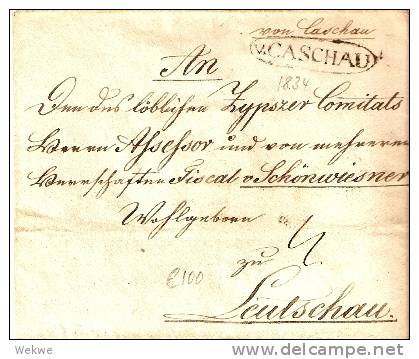 von Caschau
V. CASCHAU
An
1834
Den des löblichen Zypszer Comitats
Herrn Assessor und von mehreren
Herrschaften Fiscal v Schönwiesner
Wohlgeborn
zu
€100
Leutschau.
Wekwe
www.delcampe.net